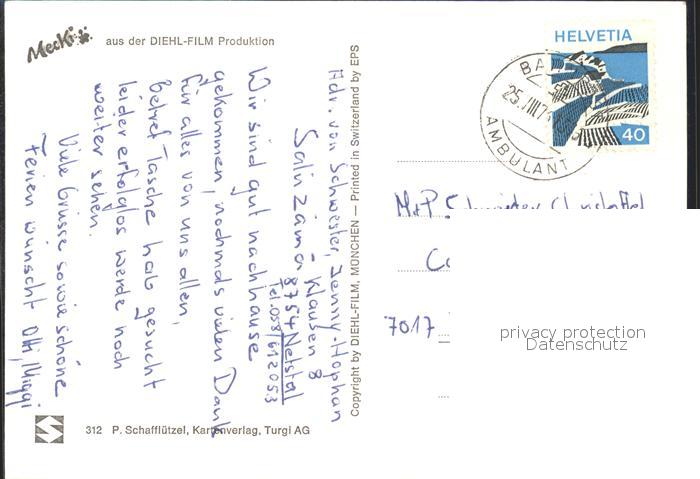 Mecki
aus der DIEHL-FILM Produktion
Adr. von Schwester, Jenny-Hophan
Klausen 8
8754 Netstal
Tel. 058/612053
Wir sind gut nachhause
gekommen, nochmals vielen Dank
für alles von uns allen,
betref Tasche hab gesucht
leider erfolglos werde noch
weiter sehen.
Viele Grüsse sowie schöne
Ferien wünscht Otti, Miggi
Copyright by DIEHL-FILM, MÜNCHEN — Printed in Switzerland by EPS
312 P. Schafflützel, Kartenverlag, Turgi AG
HELVETIA
40
25. VIII. 7
AMBULANT
M+P
7017
privacy protection
Datenschutz